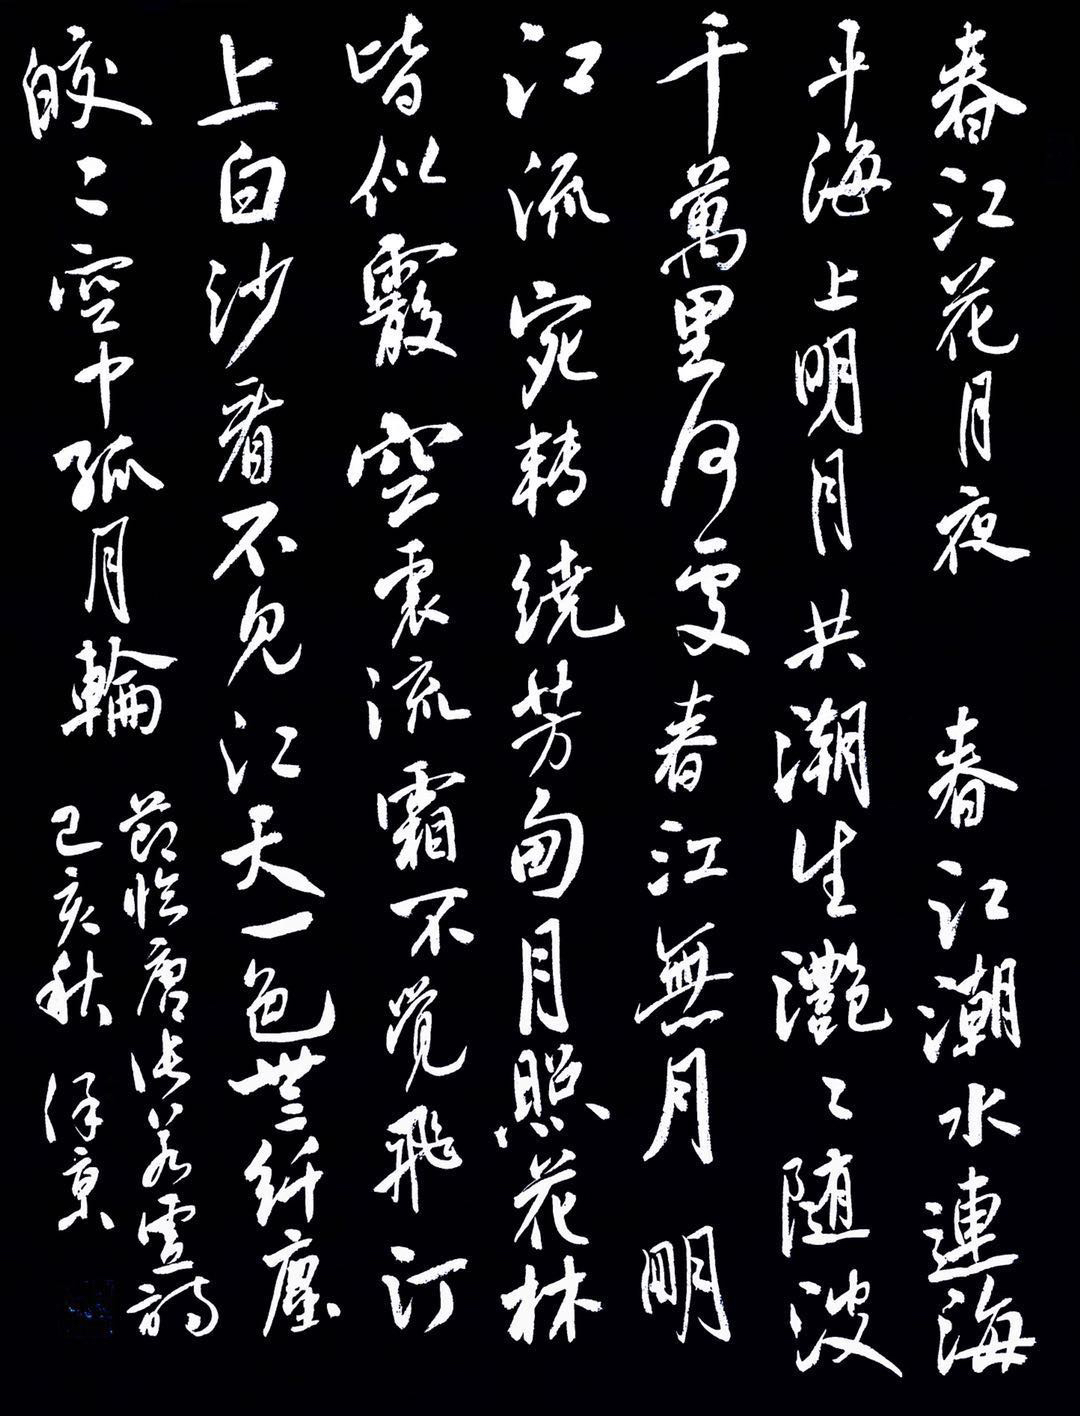 春江花月夜 春江潮水連海
平海上明月共潮生灧〻随波
千萬里何處春江無月明
江流宛轉繞芳甸月照花林
皆似霰空裏流霜不覺飛汀
上白沙看不見江天一色無纤塵
皎〻空中孤月輪
節临唐張若虛詩
己亥秋